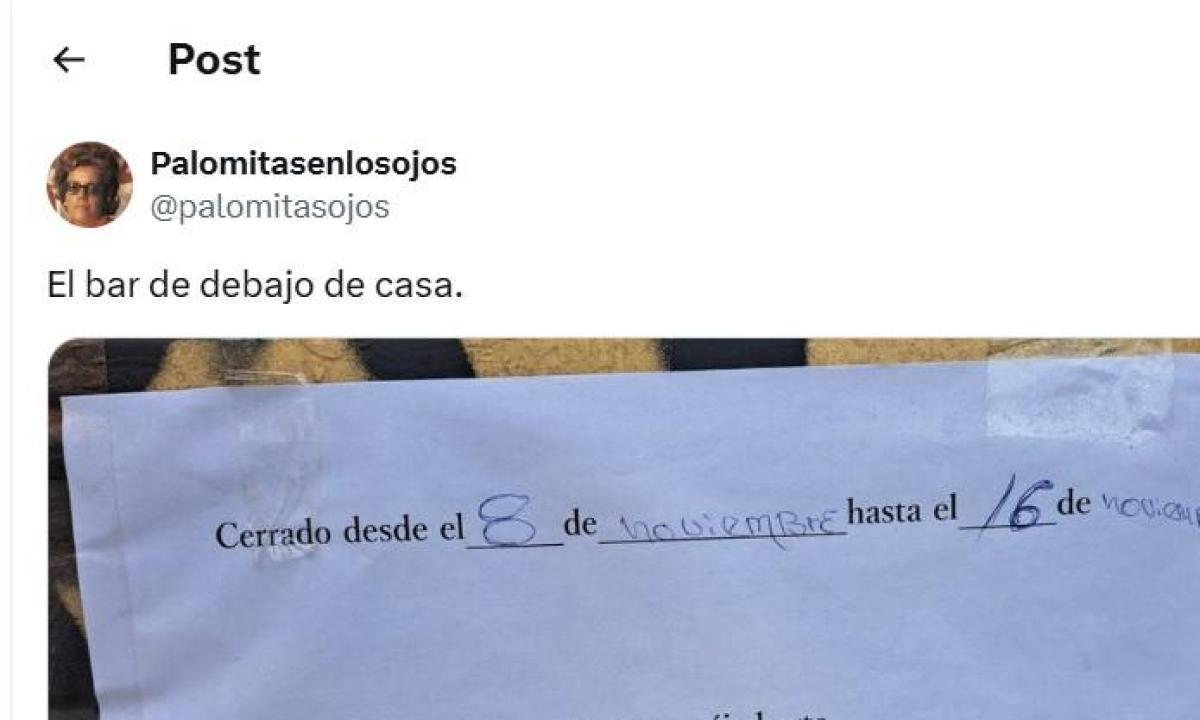 Post
Palomitasenlosojos
@palomitasojos
El bar de debajo de casa.
Cerrado desde el 8 de noviembre hasta el 16 de